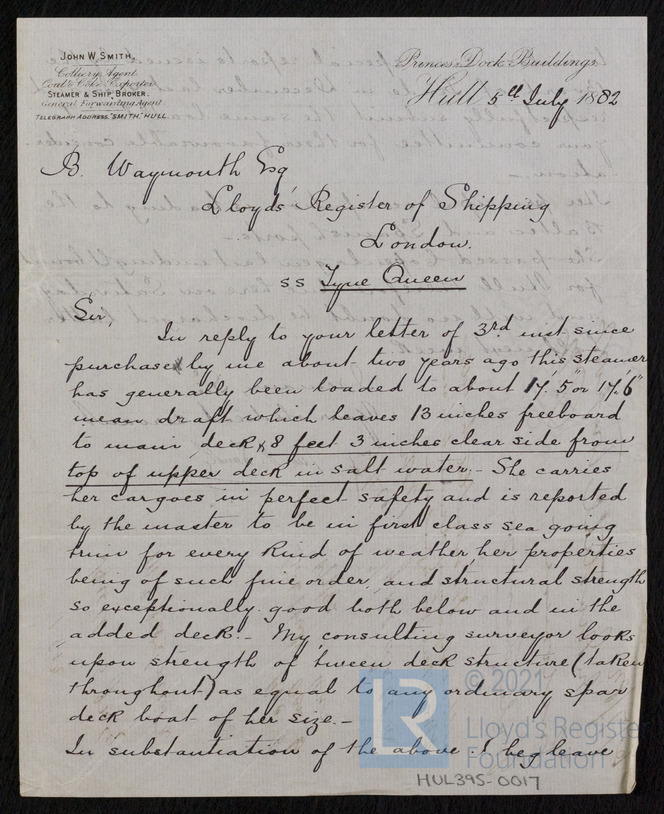 JOHN W. SMITH,
Colliery Agent
Coal & Coke Exporter
STEAMER & SHIP BROKER.
General Forwarding Agent
TELEGRAPH ADDRESS, "SMITH," HULL.
Princes Dock Buildings
Hull 5th July 1882
B. Waymouth Esq
Lloyds' Register of Shipping
London.
ss Tyne Queen
Sir,
In reply to your letter of 3rd inst since
purchased by me about two years ago this steamer
has generally been loaded to about 17.5" or 17.6"
mean draft which leaves 13 inches freeboard
to main deck & 8 feet 3 inches clear side from
top of upper deck in salt water.- She carries
her cargoes in perfect safety and is reported
by the master to be in first class sea going
trim for every kind of weather her properties
being of such fine order, and structural strength
so exceptionally good both below and in the
added deck.- My consulting surveyor looks
upon strength of tween deck structure (taken
throughout) as equal to any ordinary spar
deck boat of her size.-
In substantiation of the above I beg leave
© 2021
LR
Lloyd's Register
Foundation
HUL395-0017